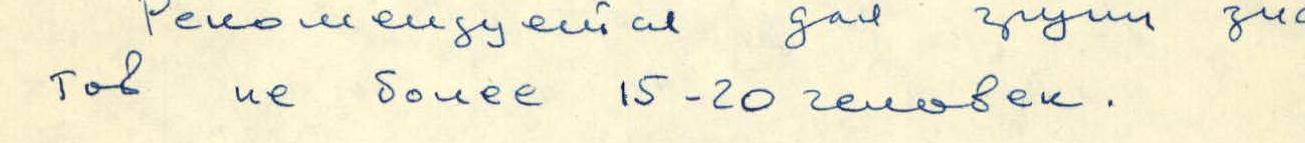 Рекомендуется для групп
тов не более 15-20 человек.